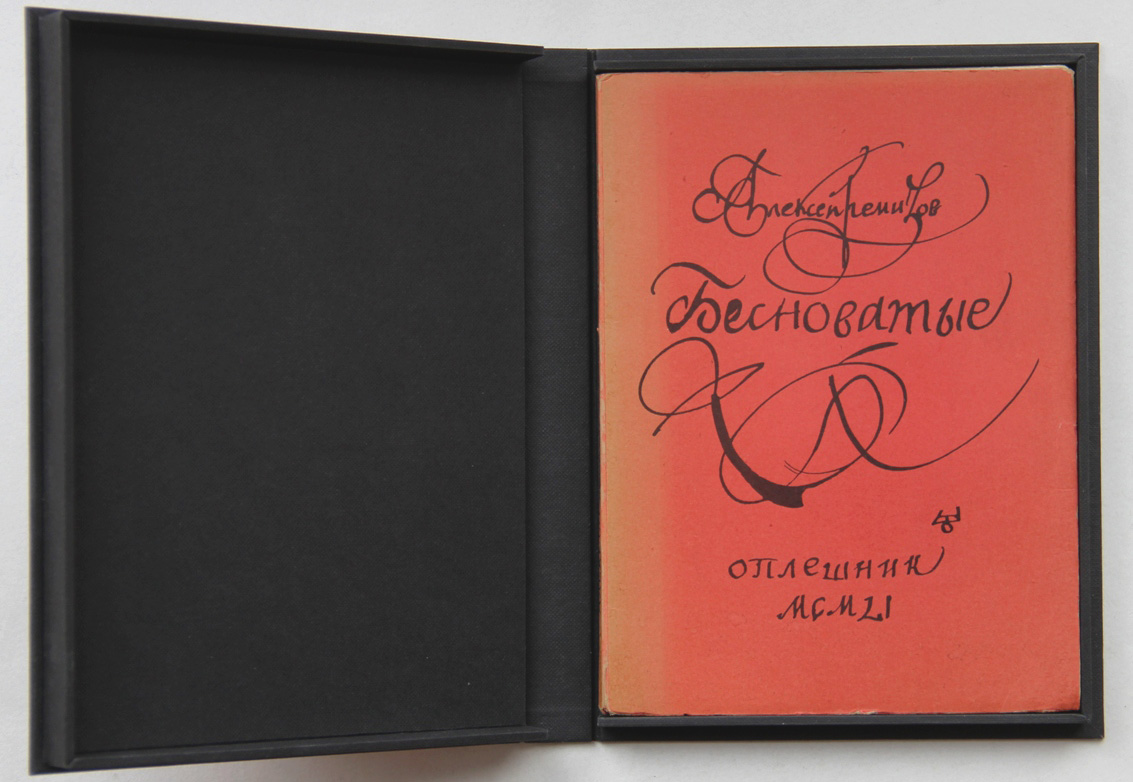 Алексей Ремизов
Бесноватые
оплешник
MCMLI